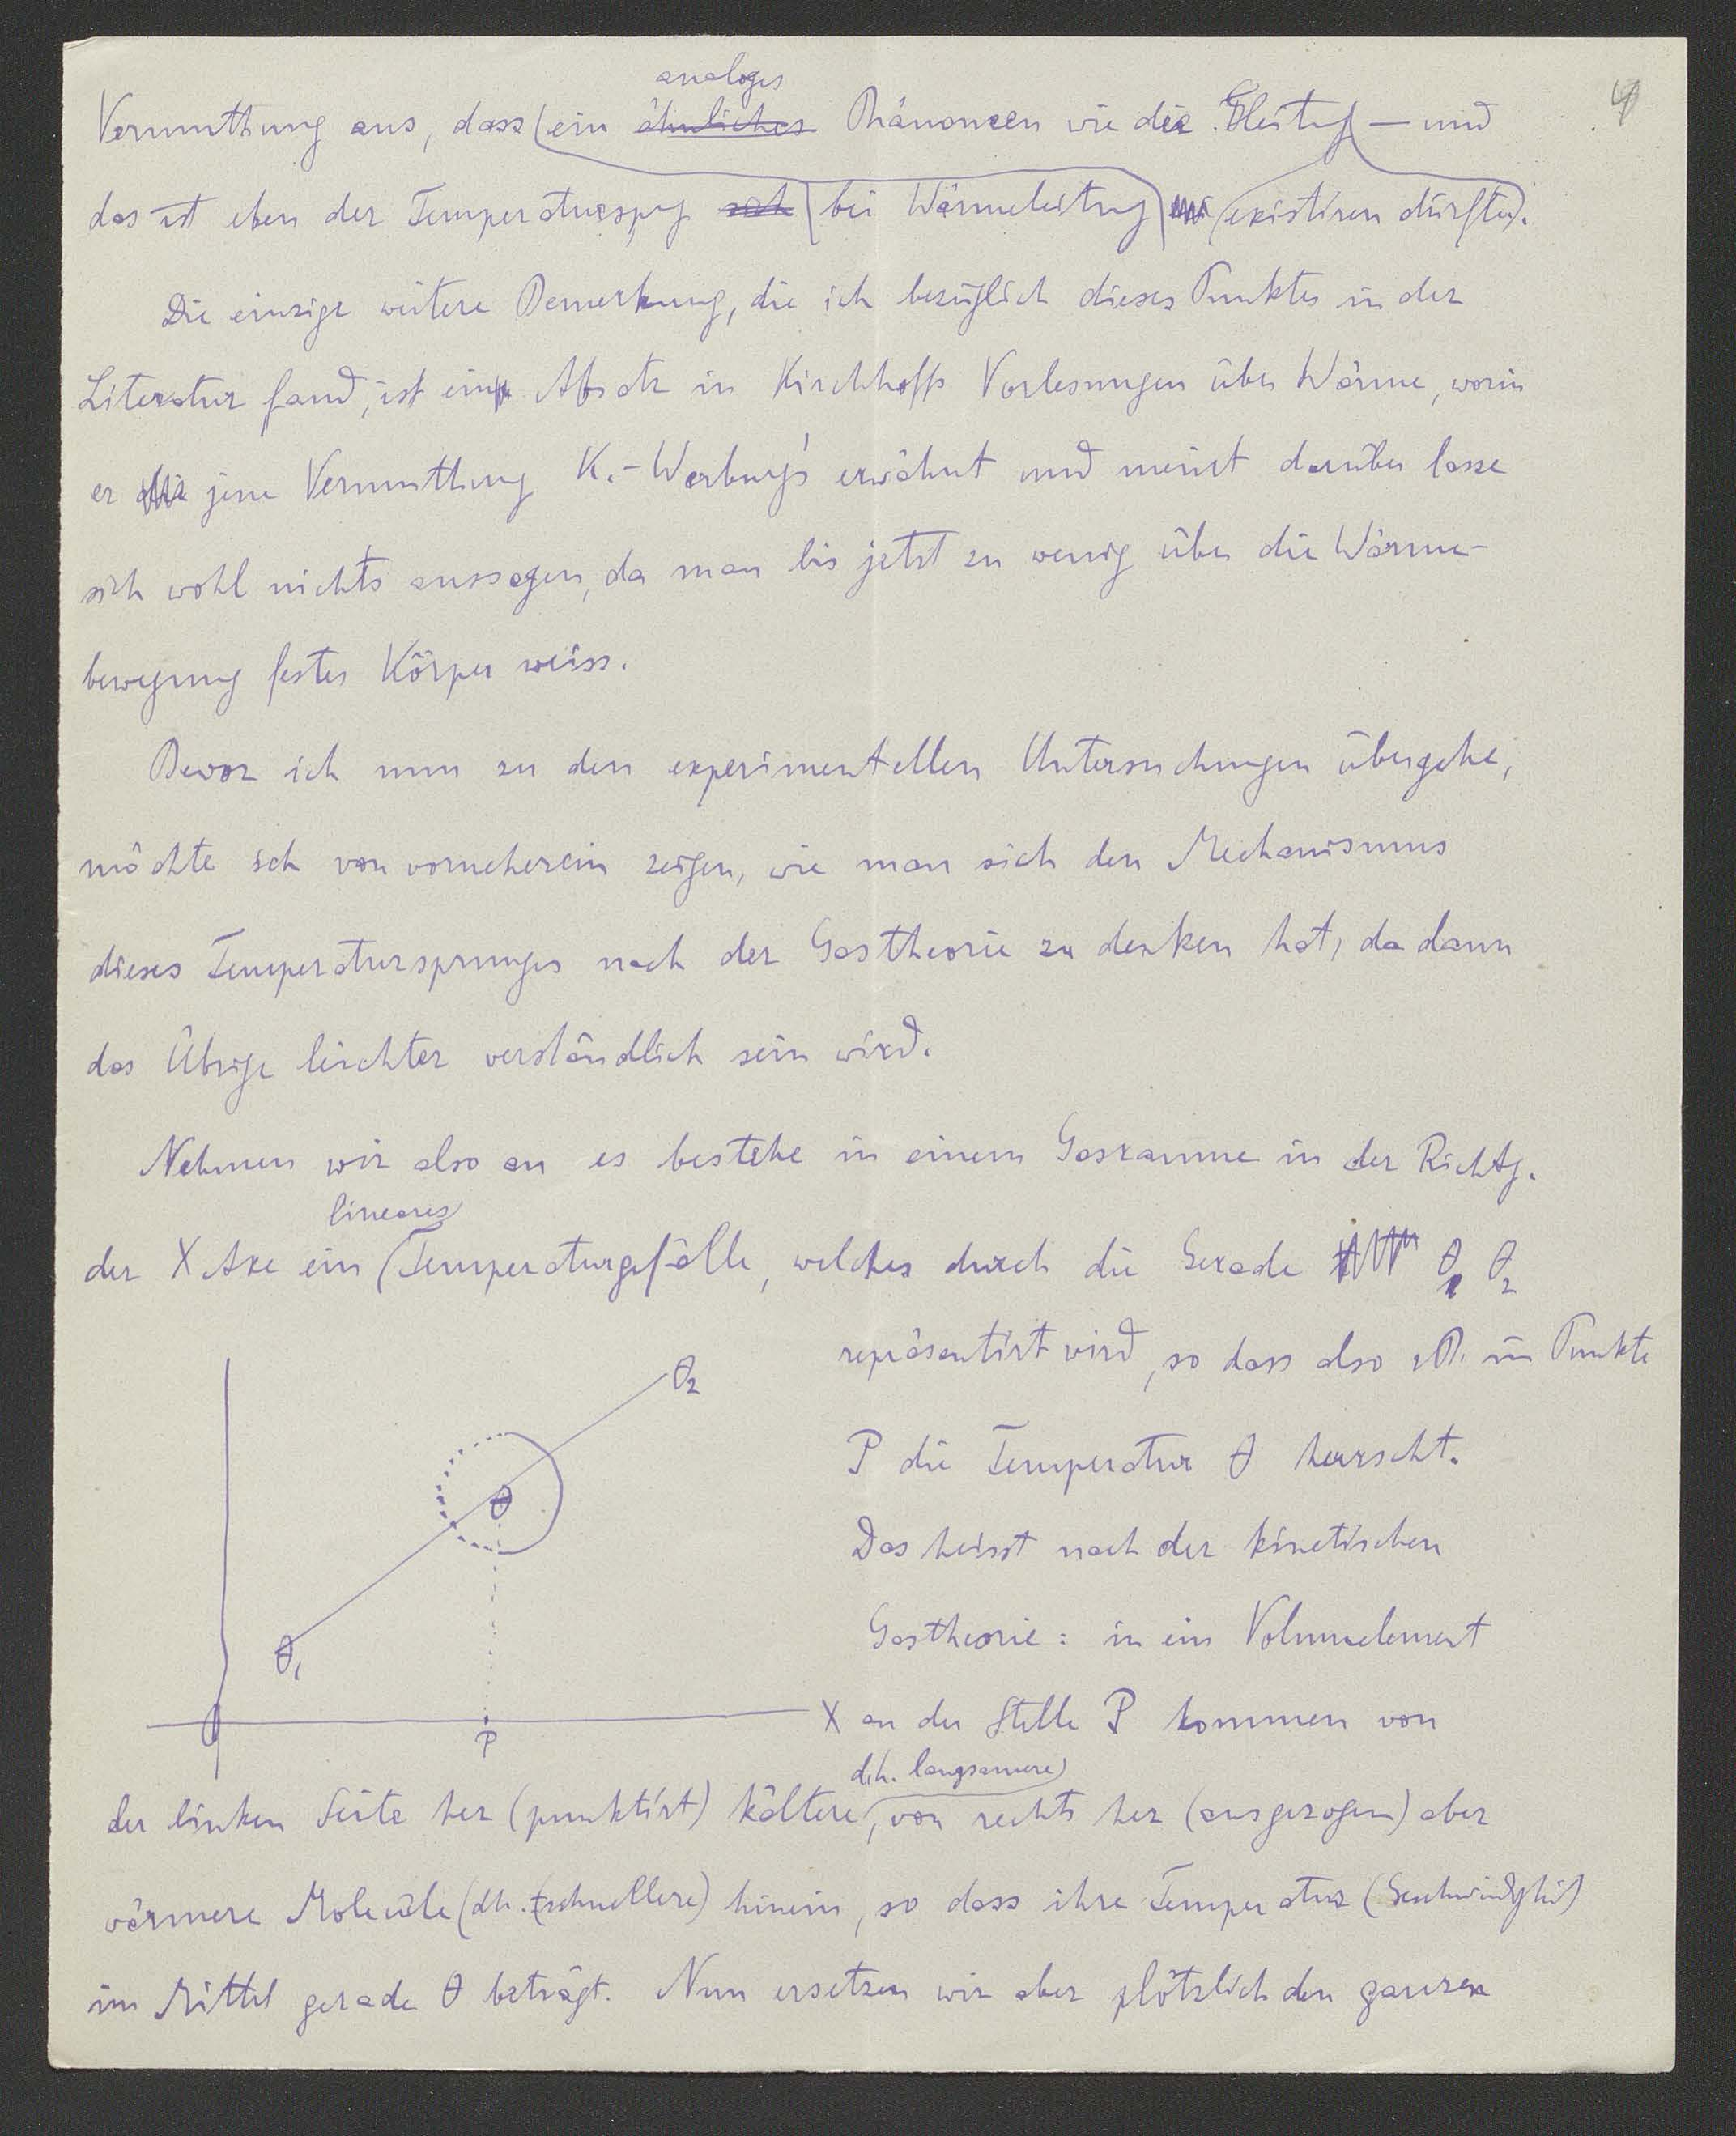 4
analoges
Vermuthung aus, dass (ein ähnliches Phänomen wie die Gleitg — und
das ist eben der Temperaturspg bei Wärmeleitung existiren dürfte).
Die einzige weitere Bemerkung, die ich bezüglich dieses Punktes in der
Literatur fand, ist ein Absatz in Kirchhoffs Vorlesungen über Wärme, worin
er jene Vermuthung K.-Warburg's erwähnt und meint darüber lasse
sich wohl nichts aussagen, da man bis jetzt zu wenig über die Wärme-
bewegung fester Körper weiss.
Bevor ich nun zu den experimentellen Untersuchungen übergehe,
möchte ich von vorneherein zeigen, wie man sich den Mechanismus
dieses Temperatursprunges nach der Gastheorie zu denken hat, da dann
das Übrige leichter verständlich sein wird.
Nehmen wir also an es bestehe in einem Gasraume in der Richtg.
lineares
der X Axe ein (Temperaturgefälle, welches durch die Gerade θ₁ θ₂
repräsentirt wird, so dass also z.B. im Punkte
P die Temperatur θ herrscht.
Das heisst nach der kinetischen
Gastheorie: in ein Volumelement
an der Stelle P kommen von
d.h. langsamere)
der linken Seite her (punktirt) kältere, von rechts her (ausgezogen) aber
wärmere Moleküle (dh. schnellere) hinein, so dass ihre Temperatur (Geschwindgkeit)
im Mittel gerade θ beträgt. Nun ersetzen wir aber plötzlich den ganzen
θ₂
θ
θ₁
O
P
X